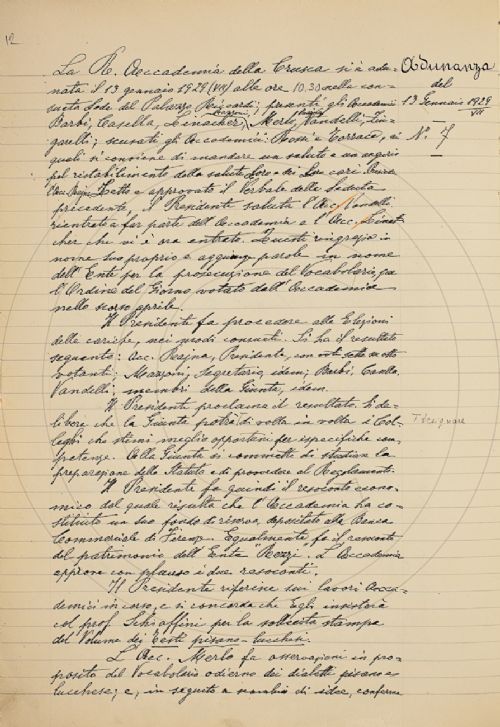 12
Adunanza
del
13 Gennaio 1929
VII
N.° 7
La R. Accademia della Crusca si è adu-
nata il 13 gennaio 1929 (VII) alle ore 10.30 nella con-
sueta Sede del Palazzo Riccardi; presenti gli Accademici
Barbi, Casella, Linacher, Mazzoni, Merlo, Vandelli,
; scusati gli Accademici Rossi e Torraca, ai
quali si conviene di mandare un saluto e un augurio
pel ristabilimento della salute Loro e dei Loro cari. Pres.
Letto e approvato il Verbale della Seduta
precedente, il Presidente saluta l'Acc. Vandelli
rientrato a far parte dell'Accademia e l'Acc. Lina-
cher che vi è ora entrato. Questi ringrazia in
nome suo proprio e aggiunge parole in nome
dell'Ente per la prosecuzione del Vocabolario, per
l'Ordine del Giorno votato dall'Accademia
nello scorso aprile.
Il Presidente fa procedere alle Elezioni
delle cariche, nei modi consueti. Si ha il resultato
seguente: Acc. Rajna, Presidente, con voti sette su otto
votanti; Mazzoni, Segretario, idem; Barbi, Casella,
Vandelli, membri della Giunta, idem.
Il Presidente proclama il resultato. Si de-
libera che la Giunta potrà di volta in volta i Col-
leghi che stimi meglio opportuni per specifiche com-
petenze. Alla Giunta si commette di studiare la
preparazione dello Statuto e di provvedere al Regolamento.
Il Presidente fa quindi il resoconto econo-
mico dal quale risulta che l'Accademia ha co-
stituito un suo fondo di riserva, depositato alla Banca
Commerciale di Firenze. Egualmente fa il resoconto
del patrimonio dell'Ente "Rezzi". L'Accademia
approva con plauso i due resoconti.
Il Presidente riferisce sui lavori Acca-
demici in corso, e si concorda che Egli insisterà
col prof. Schiaffini per la sollecita stampa
del Volume dei Testi pisano-lucchesi.
L'Acc. Merlo fa osservazioni in pro-
posito del Vocabolario odierno dei dialetti pisano e
lucchese; e, in seguito a scambio di idee, conferma